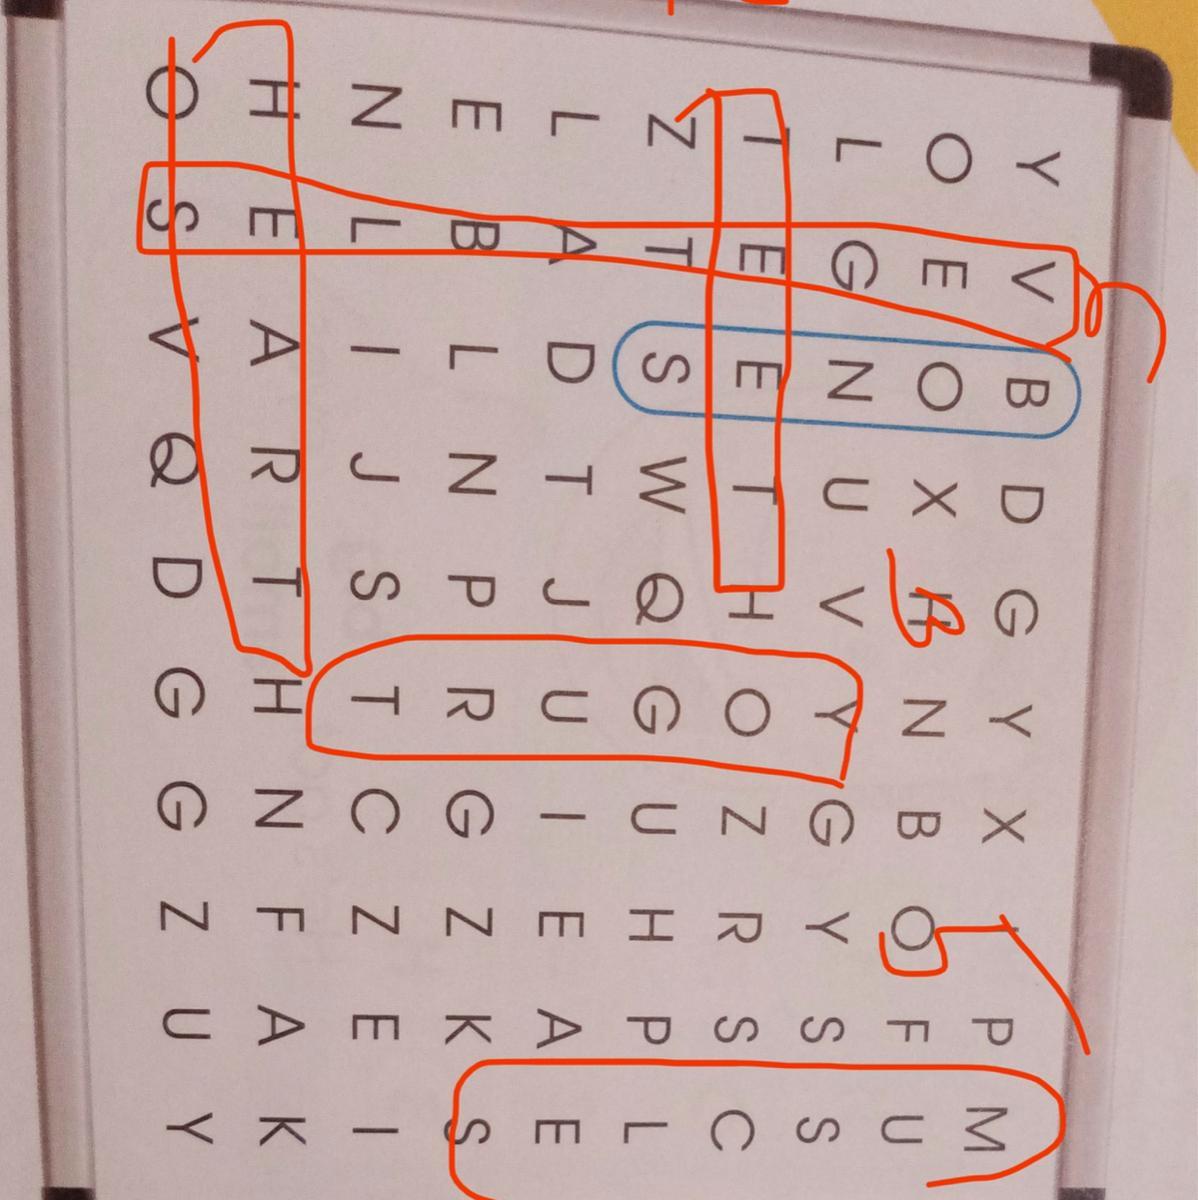 Y V B D G Y X P M
O E O X H N B O F U
L G N U V Y G Y S S
T E E T H O Z R S C
Z T S W Q G U H P L
L A D T J U I E A E
E B L N P R G Z K S
N L I J S T C Z E I
H E A R T H N F A K
O S V Q D G G Z U Y